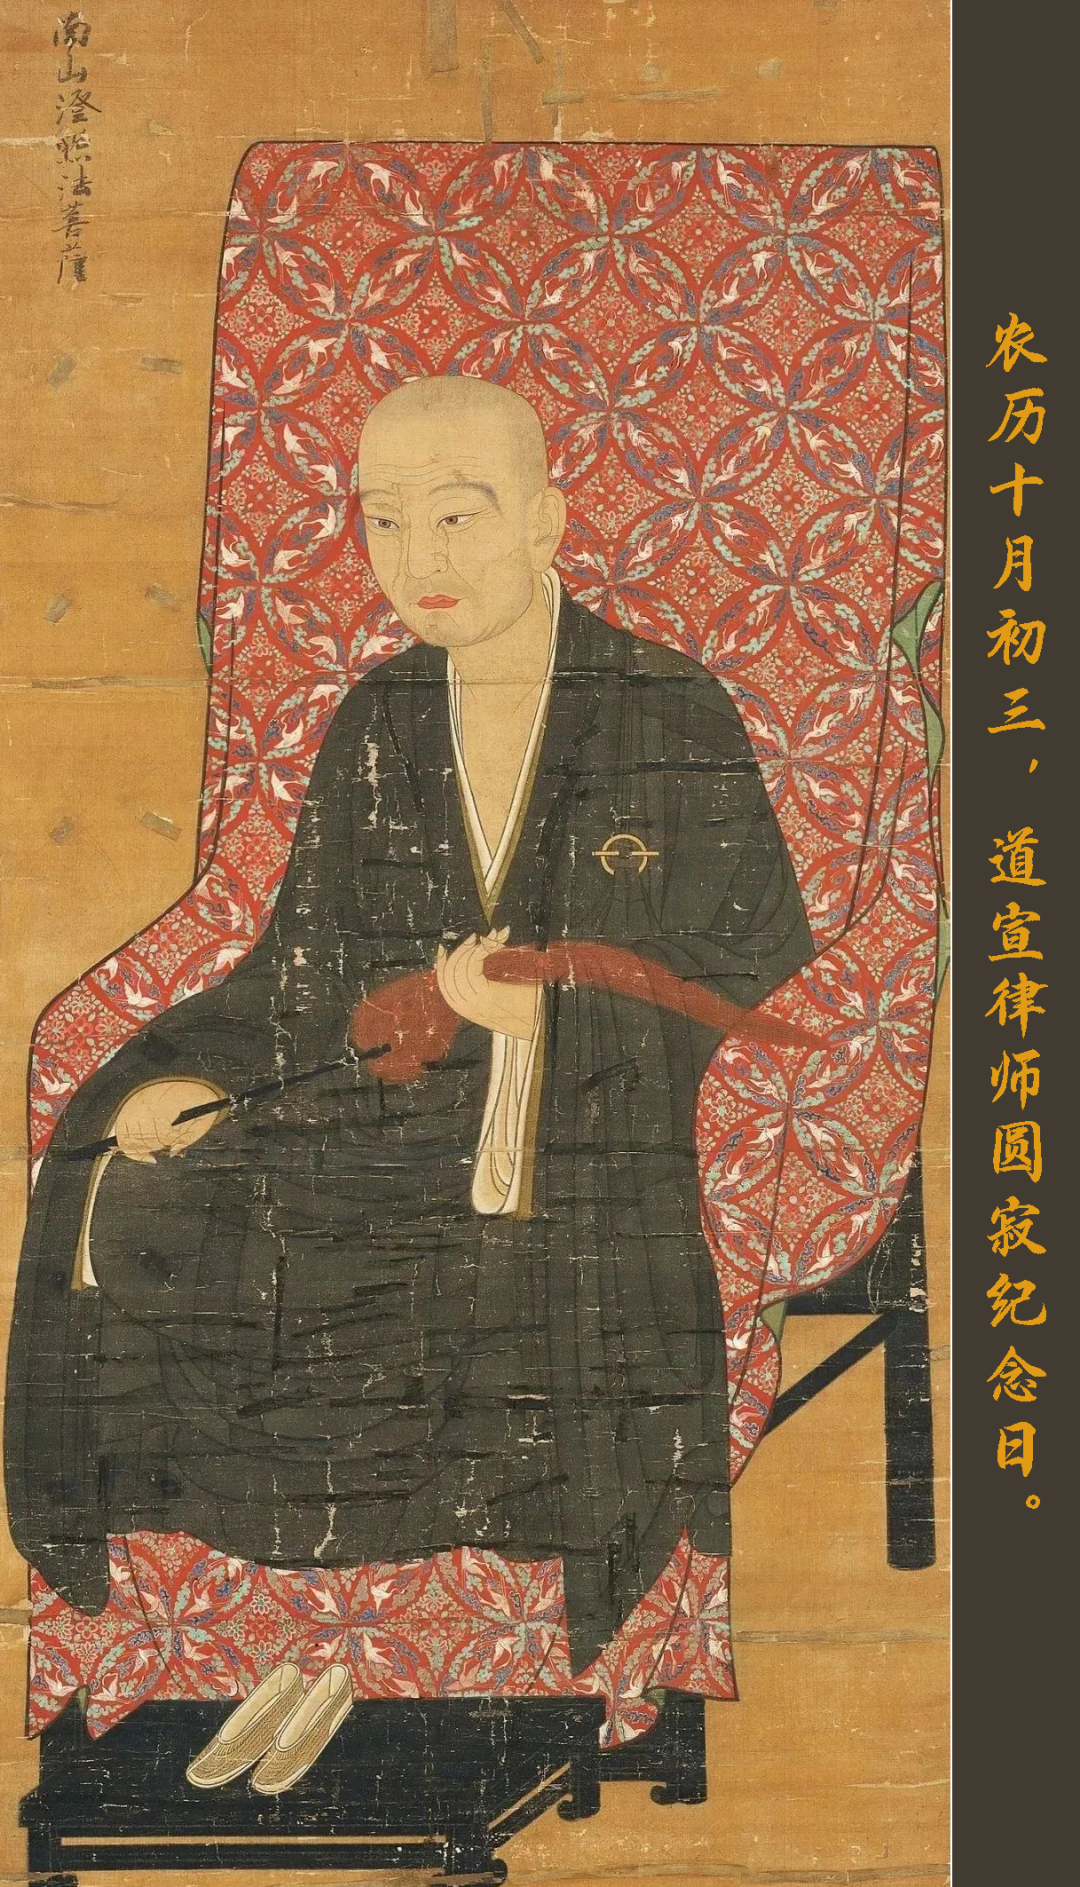 农历十月初三，道宣律师圆寂纪念日。
南山澄照法菩萨